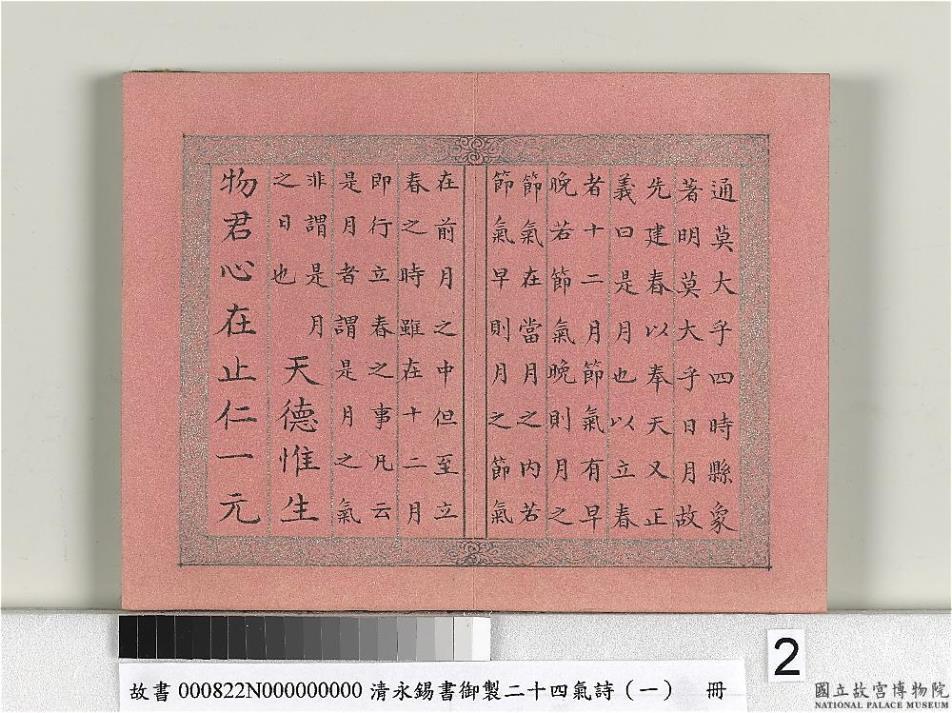 通莫大乎四時縣象
著明莫大乎日月故
先建春以奉天又正
義曰是月也以立春
者十二月節氣有早
晚若節氣晚則月之
節氣在當月之內若
節氣早則月之節氣
在前月之中但至立
春之時雖在十二月
即行立春之事凡云
是月者謂是月之氣
非謂是月
之日也
天德惟生
物君心在止仁一元
故書 000822N000000000 清永錫書御製二十四氣詩（一） 冊
2
國立故宮博物院
NATIONAL PALACE MUSEUM